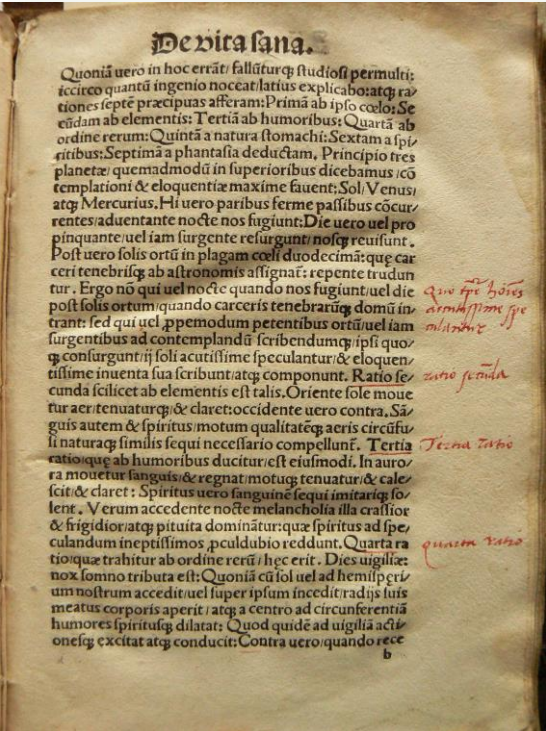 De vita sana.
Quoniā uero in hoc errāt/ fallūturq; studiosi permulti:
iccirco quantū ingenio noceat/latius explicabo:atq; ra/
tiones septē præcipuas afferam:Primā ab ipso cœlo:Se
cūdam ab elementis: Tertiā ab humoribus: Quartā ab
ordine rerum: Quintā a natura stomachi: Sextam a spi/
ritibus:Septimā a phantasia deductam. Principio tres
planetæ/ quemadmodū in superioribus dicebamus /cō
templationi & eloquentiæ maxime fauent:Sol/Venus/
atq; Mercurius. Hi uero paribus ferme passibus cōcur/
rentes/aduentante nocte nos fugiunt:Die uero uel pro
pinquante/uel iam surgente resurgunt/nosq; reuisunt.
Post uero solis ortū in plagam cœli duodecimā:quę car
ceri tenebrisq; ab astronomis assignat̄: repente trudun
tur. Ergo nō qui uel nocte quando nos fugiunt/uel die
post solis ortum/quando carceris tenebrarūq; domū in/
trant: sed qui uel ꝓpemodum petentibus ortū/uel iam
surgentibus ad contemplandū scribendumq;/ipsi quo/
q; consurgunt/ij soli acutissime speculantur/& eloquen/
tissime inuenta sua scribunt/atq; componunt. Ratio se/
cunda scilicet ab elementis est talis.Oriente sole moue
tur aer/tenuaturq;/& claret:occidente uero contra.Sā/
guis autem & spiritus/motum qualitatēq; aeris circūfu/
si naturaq; similis sequi necessario compellunt̄. Tertia
ratio/quę ab humoribus ducitur/est eiusmodi. In auro/
ra mouetur sanguis/& regnat/motuq; tenuatur/& cale/
scit/& claret : Spiritus uero sanguinē sequi imitariq; so/
lent. Verum accedente nocte melancholia illa crassior
& frigidior/atq; pituita dominātur:quæ spiritus ad spe/
culandum ineptissimos ꝓculdubio reddunt.Quarta ra
tio/quæ trahitur ab ordine rerū/hęc erit. Dies uigiliæ:
nox somno tributa est: Quoniā cū sol uel ad hemisperi/
um nostrum accedit/uel super ipsum incedit/radijs suis
meatus corporis aperit/atq; a centro ad circunferentiā
humores spiritusq; dilatat: Quod quidē ad uigiliā acti/
onesq; excitat atq; conducit: Contra uero/quando rece
b
ratio secūda
Tertia ratio
quarta ratio